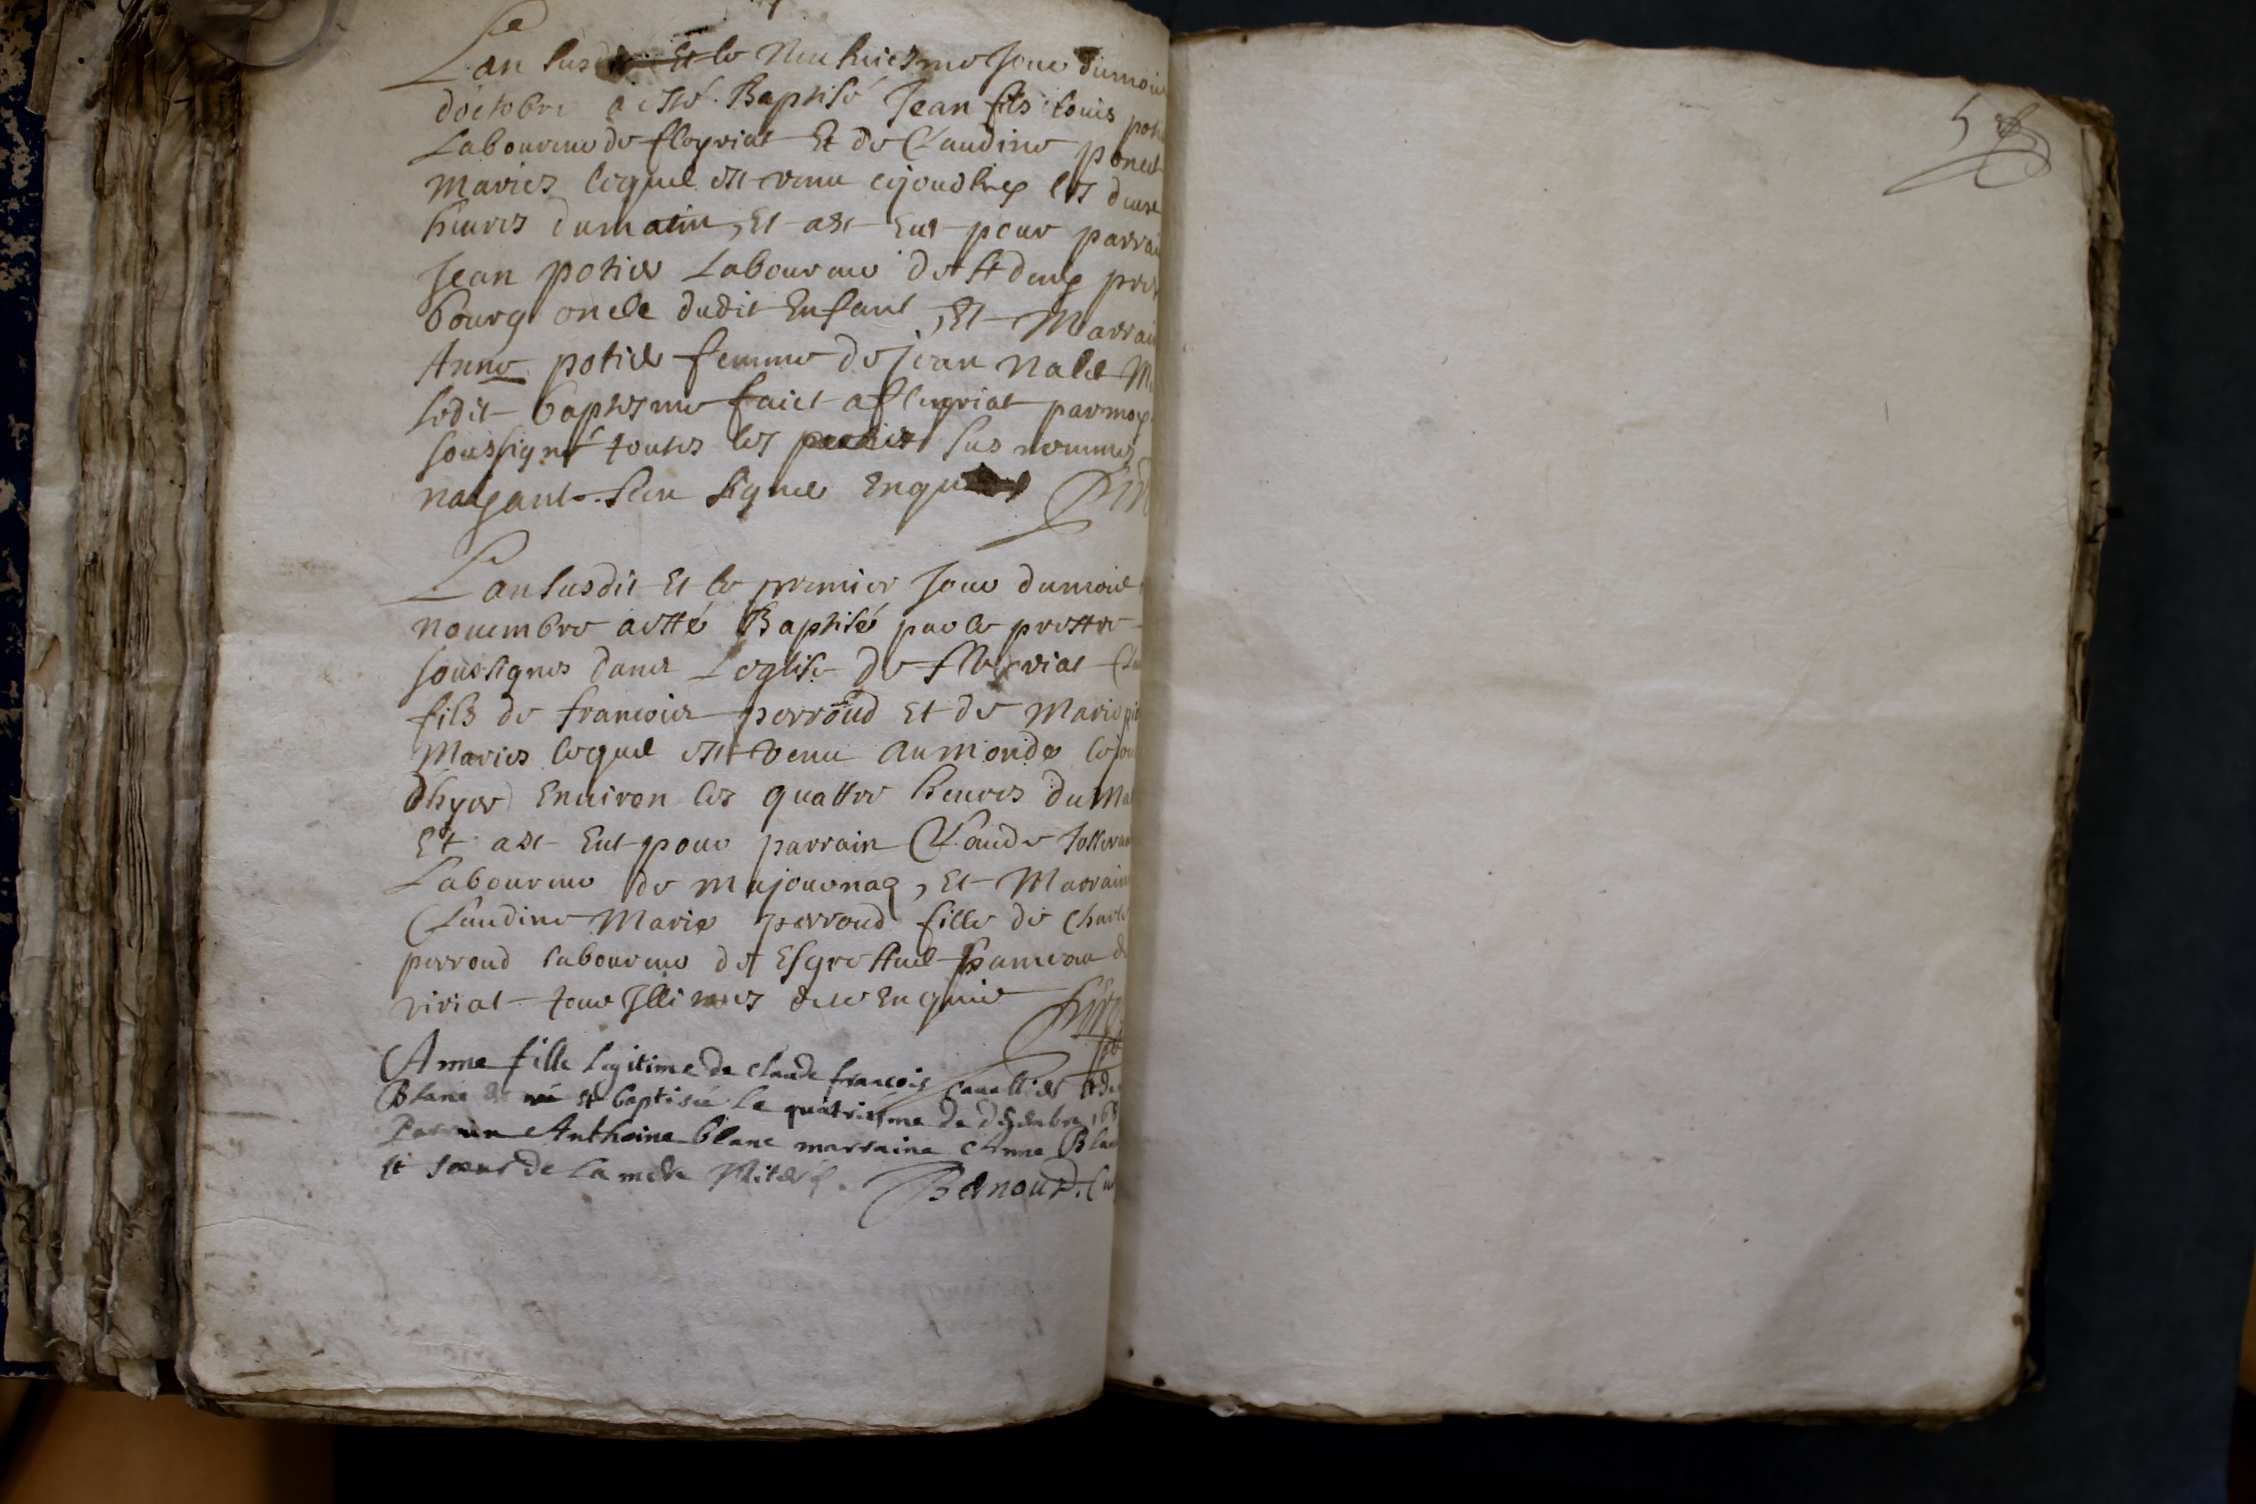 Lan susdit Et le neufuiesme Jour du mois
d'octobre a esté Baptisé Jean fils Louis
Laboureur de fleyriat Et de Claudine poncet
Mariés lequel est venu cejourdhuy les deux
heures du matin, Et ast Eut pour parrai
Jean potier Laboureur de St denÿ pres
bourg oncle dudit Enfant, Et Marrai
Anne potier femme de jean
ledit baptesme faict a fleyriat par moy
soussigné toutes les parties sus nommes
naÿant sceu signer Enquis
Lan susdit Et le premier Jour du mois
nouembre a esté Baptisé par le prestre
soussignes dans Leglise de fleyriat
fils de francois perroud Et de Marie
Mariés lequel est venu au monde le jour
dhyer Enuiron les quattre heures du Ma
Et ast Eut pour parrain Claude
Laboureur de majournaq, Et Marraine
Claudine Marie perroud fille de Charle
perroud laboureur de hameau de
viriat tous Illiterés de ce Enquis
Anne fille legitime de claude françois Caualtier et de
Blanc et baptisée le quatriesme de décembre 168
Parrain Anthoine blanc marraine Anne Blan
et soeur de la mere Illiterés.
Bernoud. Cu